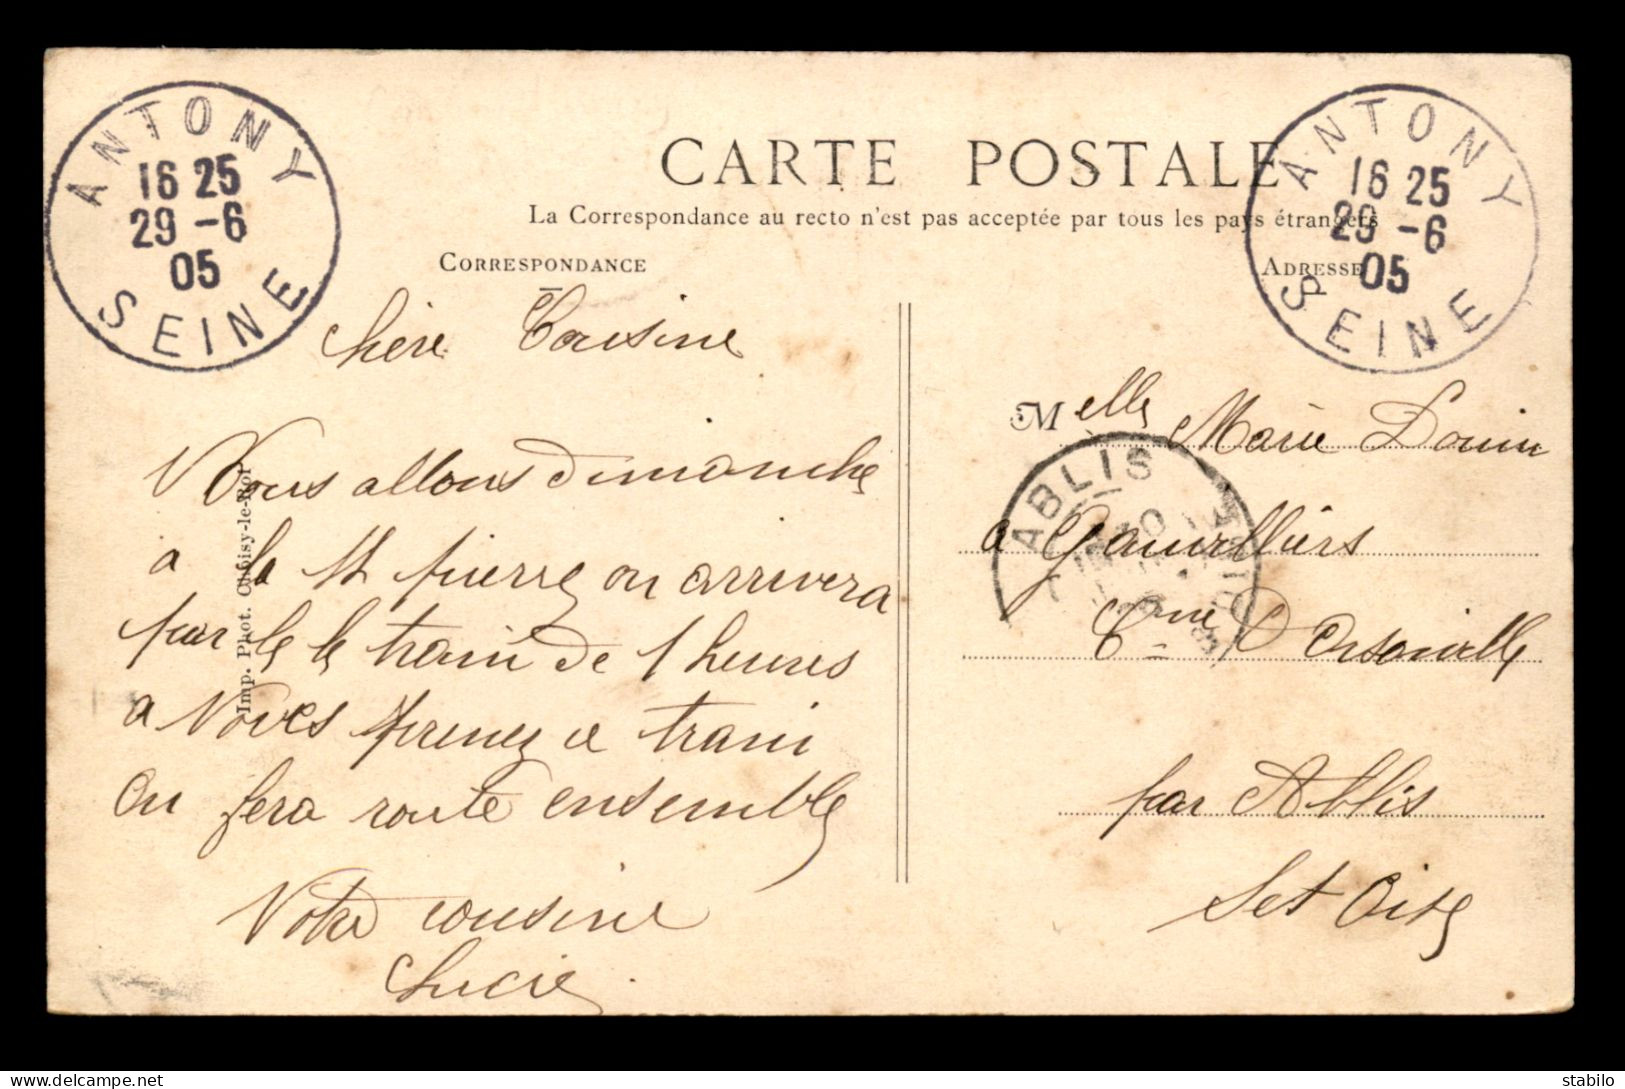 ANTONY
16 25
29 -6
05
SEINE
CARTE POSTALE
La Correspondance au recto n'est pas acceptée par tous les pays étrangers
CORRESPONDANCE
ADRESSE
ANTONY
16 25
29 -6
05
SEINE
Chère Cousine
Nous allons Dimanche
a la St pierre on arrivera
par le le train de 1 heures
a Vous prenez ce train
on fera route ensemble
Votre cousine
Lucie
Imp. Phot. Choisy-le-Roi
Melle Marie
a
Cme D'Orsonville
par Ablis
Set Oise
ABLIS
stabilo